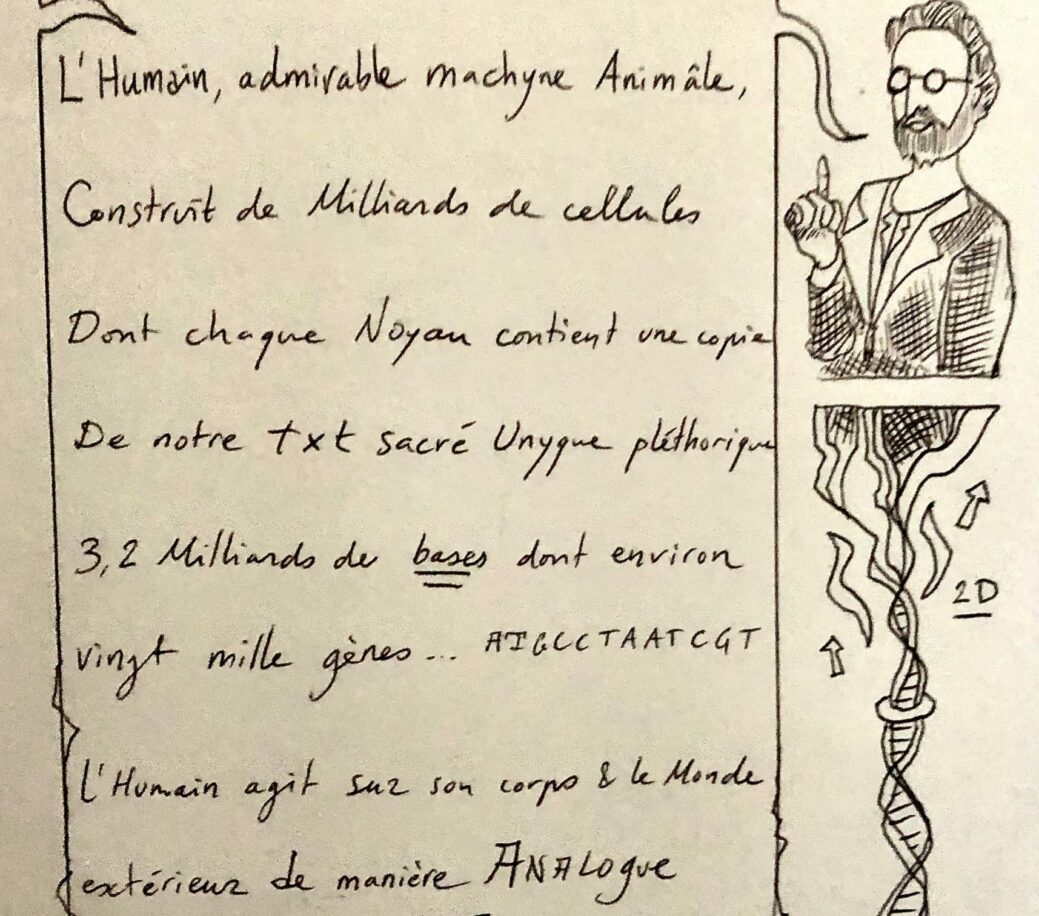 L'Humain, admirable machyne Animâle,
Construit de Milliards de cellules
Dont chaque Noyau contient une copie
De notre txt sacré Unyque pléthorique
3,2 Milliards de bases dont environ
vingt mille gènes... ATGCCTAATCGT
L'Humain agit sur son corps & le Monde
extérieur de manière ANALOgue
2D